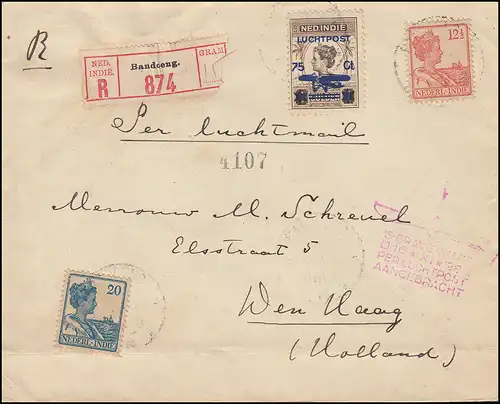 R
NED. INDIË. R
Bandoeng.
874
GRAM
NED. INDIE
LUCHTPOST
75 Ct
12½
NEDERL.-INDIE
Per luchtmail
4107
Mevrouw M. Schreuel
Elsstraat 5
PER LUCHTPOST
AANGEBRACHT
20
NEDERL.-INDIE
Den Haag
(Holland)